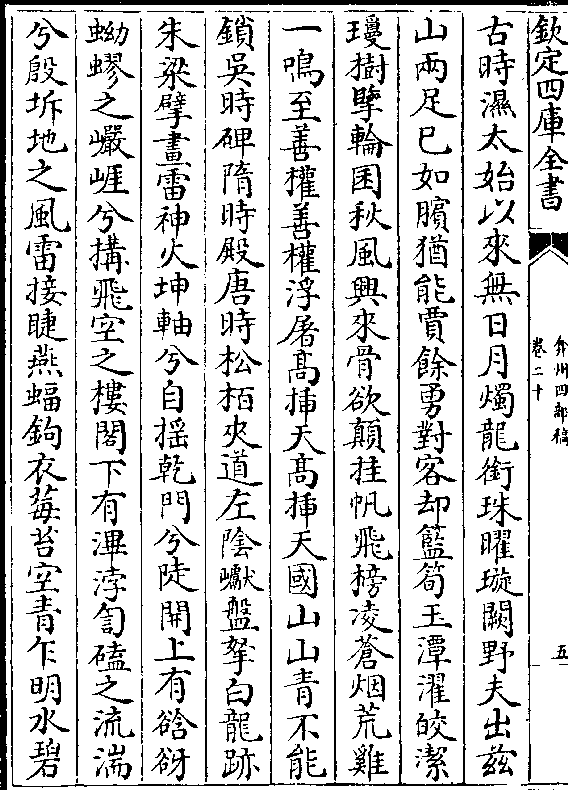 欽定四庫全書
弇州四部稿
卷二十
五
古時濕太始以來無日月燭龍銜珠曜璇闕野夫出茲
山兩足已如臏猶能賈餘勇對客却籃筍玉潭濯皎潔
瓊樹擘輪囷秋風興來骨欲顛挂帆飛榜凌蒼烟荒雞
一鳴至善權善權浮屠髙揷天髙揷天國山山青不能
鎖吳時碑隋時殿唐時松栢夾道左陰巘盤拏白龍跡
朱梁擘畫雷神火坤軸兮自摇乾門兮陡開上有谽谺
蚴蟉之巗崕兮搆飛空之樓閣下有渒浡訇磕之流湍
兮殷坼地之風雷接睫燕蝠鉤衣莓苔空青乍明水碧